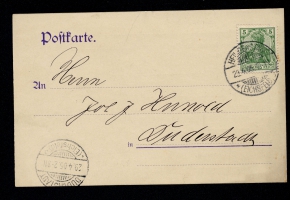 Postkarte.
5 5
An Herrn
Jos. J. Hunold
in Duderstadt